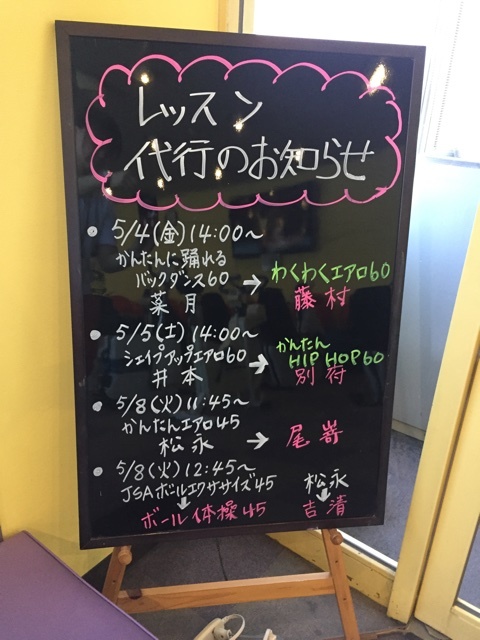 レッスン
代行のお知らせ
• 5/4(金)14:00～
かんたんに踊れる
バックダンス60 → わくわくエアロ60
葉月 藤村
• 5/5(土)14:00～
シェイプアップエアロ60 → かんたん HIP HOP60
井本 別府
• 5/8(火)11:45～
かんたんエアロ45
松永 → 尾嵜
• 5/8(火)12:45～
JSAボールエクササイズ45 松永
↓ ↓
ボール体操45 吉清